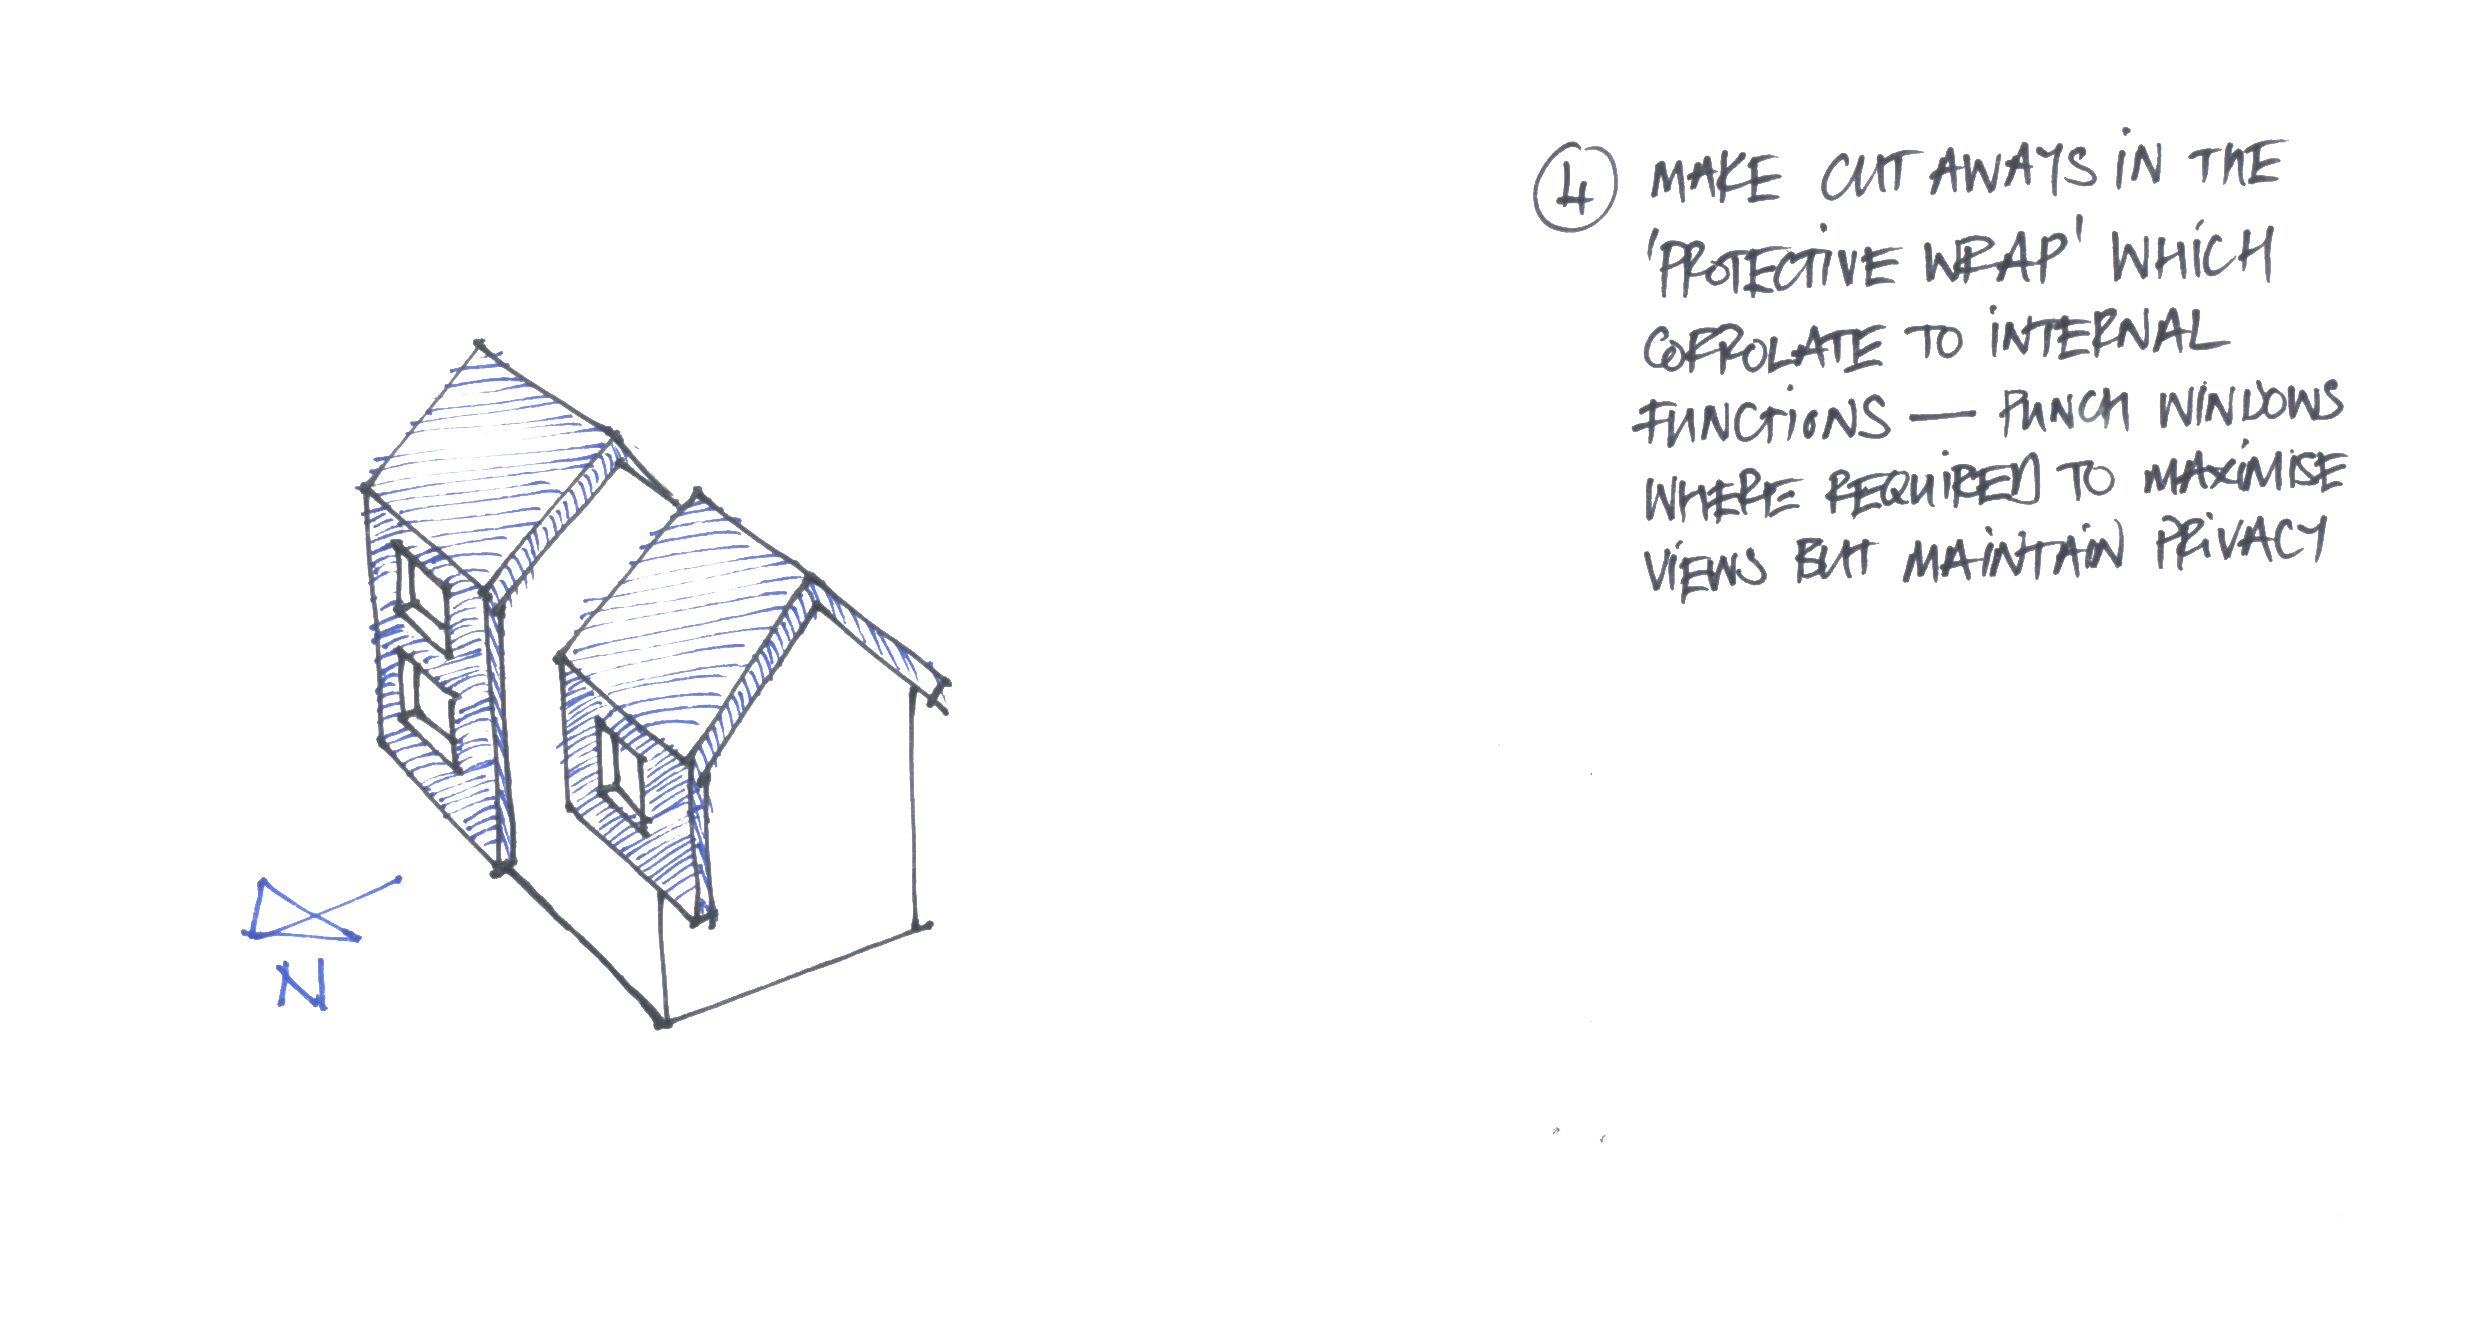 4 MAKE CUTAWAYS IN THE
'PROTECTIVE WRAP' WHICH
CORROLATE TO INTERNAL
FUNCTIONS — PUNCH WINDOWS
WHERE REQUIRED TO MAXIMISE
VIEWS BUT MAINTAIN PRIVACY
N